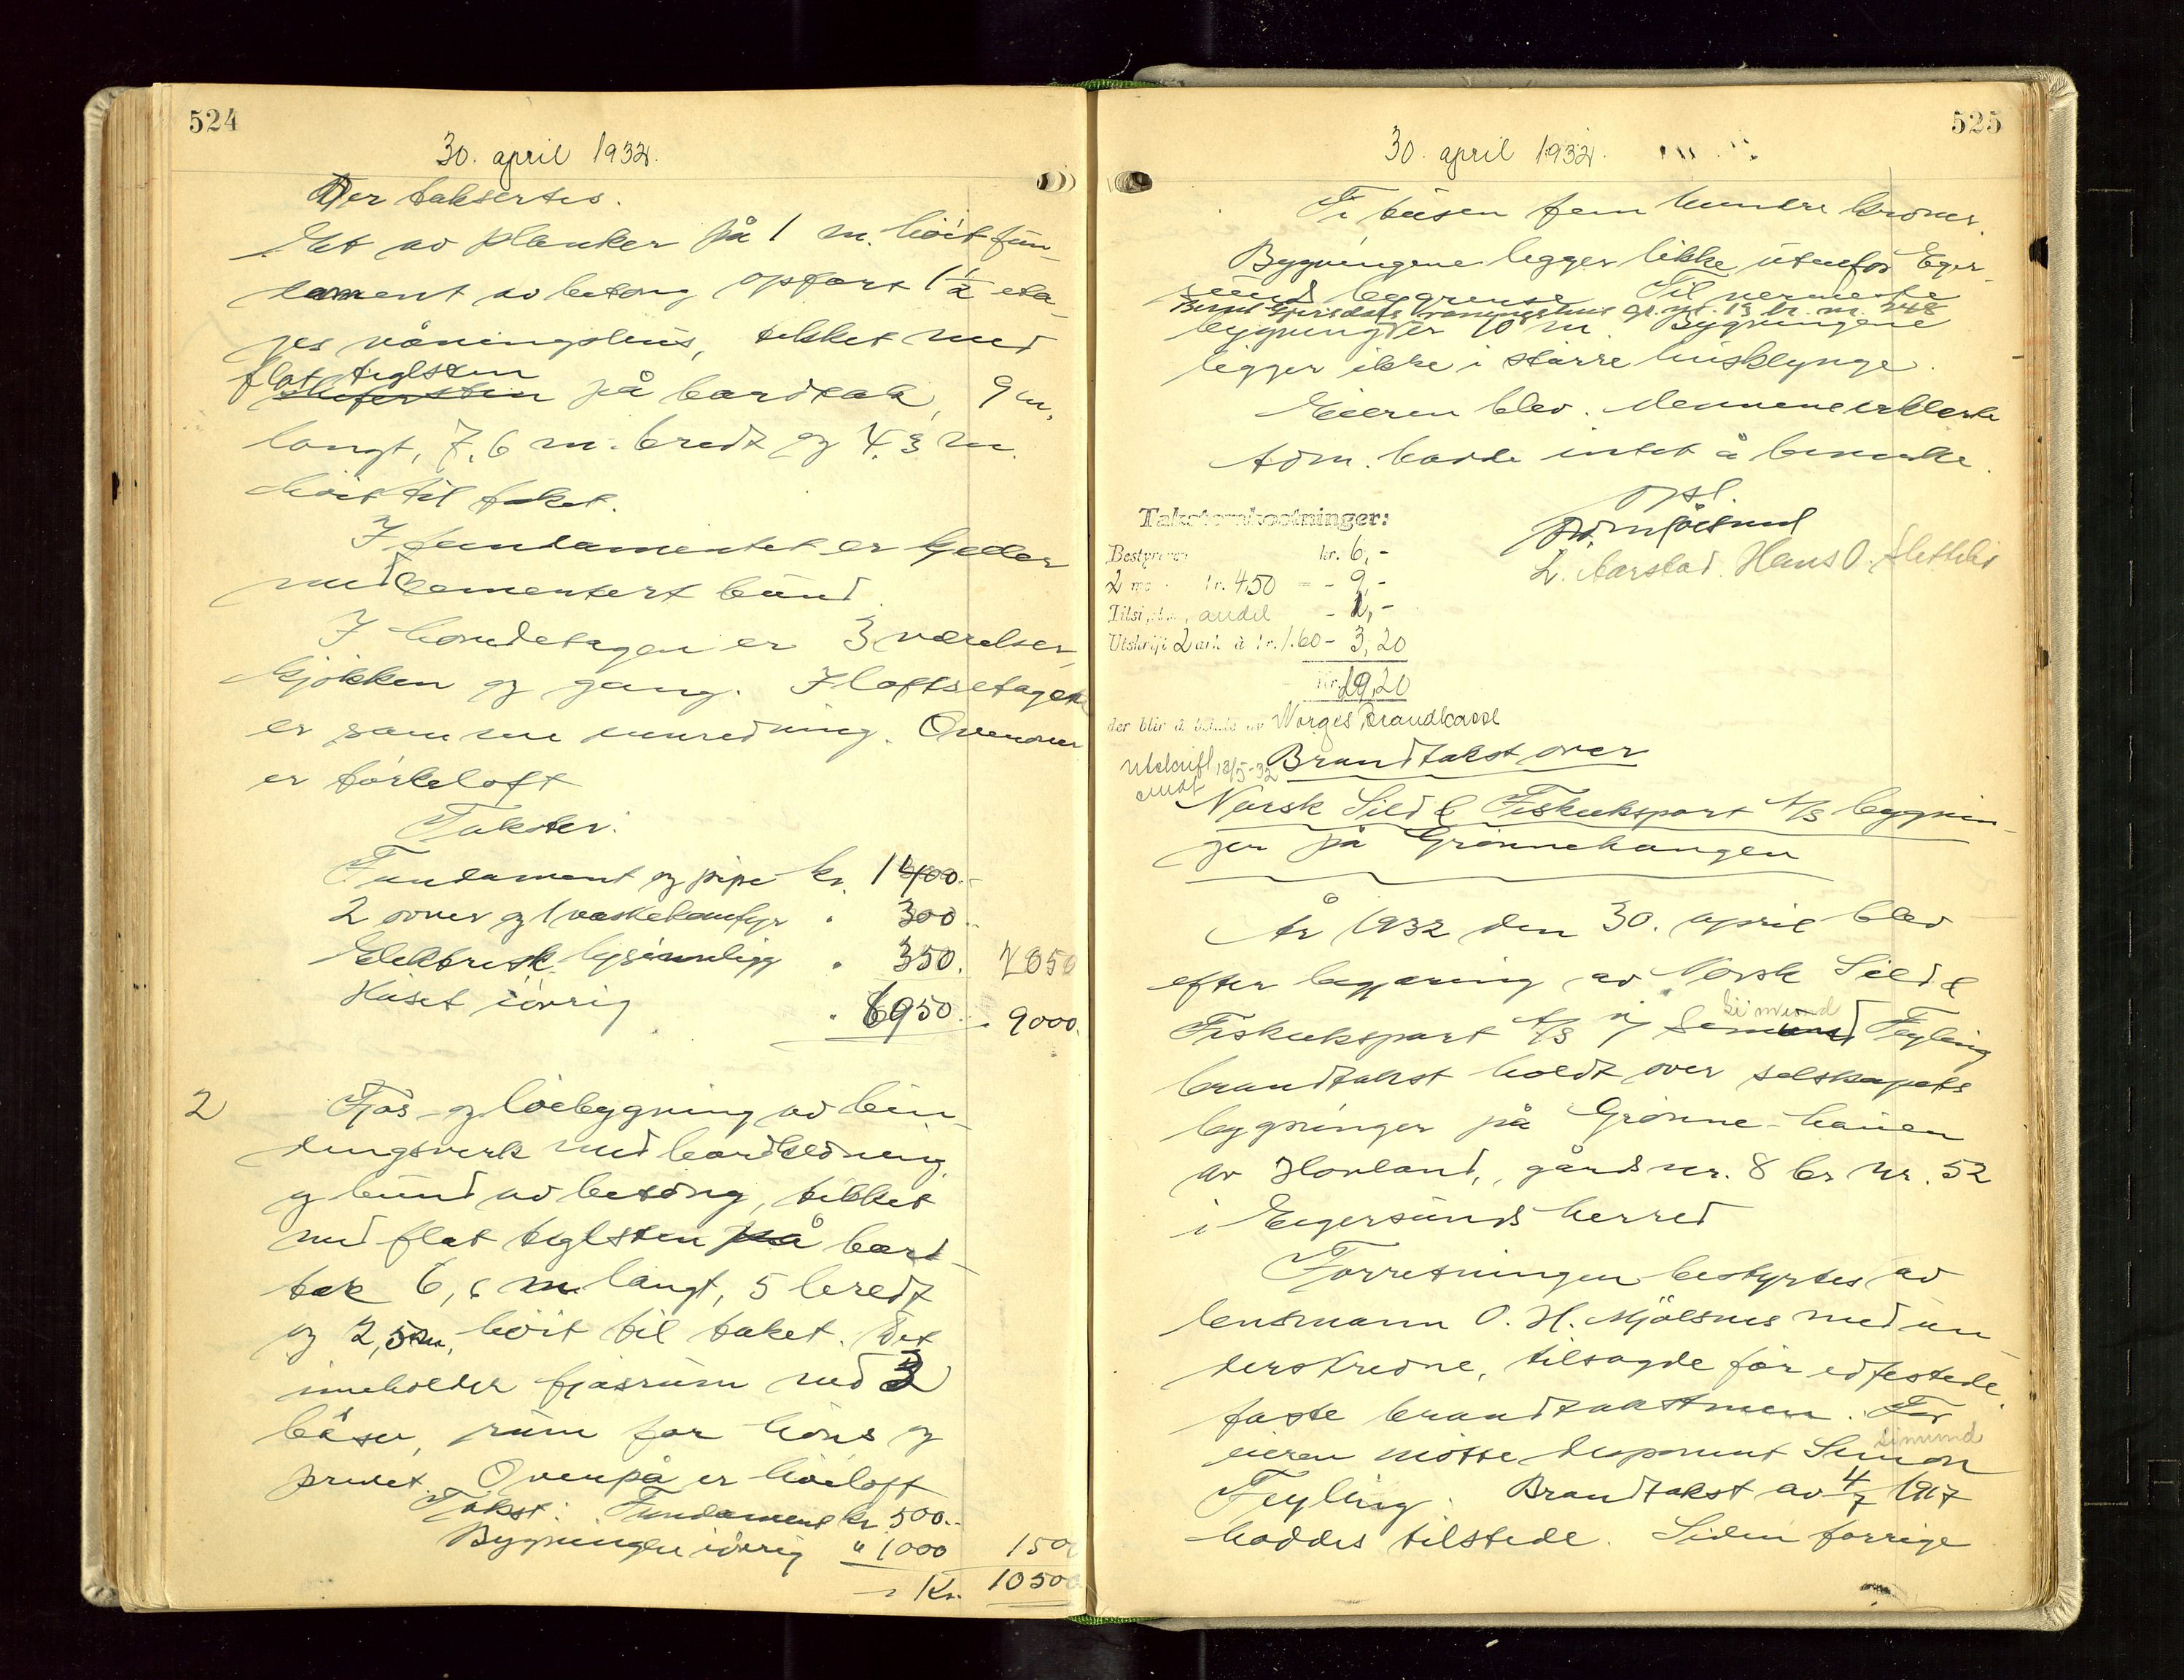 524
30. april 1932.
Der taksertes.
Et av planker på 1 m. höit fun-
dament av betong opført 1½ eta-
jes våningshus, tekket med
flat teglsten
skifersten på bordtak, 9 m.
langt, 7,6 m. bredt og 4,3 m.
höit til taket.
I fundamentet er kjeller
med cementert bund.
I hovedetagen er 3 værelser,
kjökken og gang. I loftsetagen
er samme innredning. Ovenover
er törkeloft
Takster:
Fundament og pipe kr. 1400.-
2 ovner og 1 vaskekomfyr " 300.-
Elektrisk lysinnlegg " 350. 2050
Huset iövrig " 6950. - 9000.
2 Fjös- og löebygning av bin-
dingsverk med bordkledning
og bund av betong, tekket
med flat teglsten på bord-
tak 6,6 m langt, 5 bredt
og 2,5 m, höit til taket. Det
inneholder fjøsrum med 3
båser, rum for höns og
privet. Ovenpå er höiloft
Takst: Fundament kr. 500.-
Bygningen iövrig " 1000 1500
Kr. 10500
525
30. april 1932.
Ti tusen fem hundre kroner.
Bygningene legger likke utenfor Eger-
sund bygrense. Til nermeste
våningshus gr. nr. 13 br. nr. 248
bygning er 10 m. Bygningene
ligger ikke i större husklynge.
Eieren blev. Mennene erklerte
som. havde intet å bemerke.
Opl.
L. Aarstad. Hans O.
Takstomkostninger:
Bestyreren kr. 6,-
2 kr. 4,50 = - 9,-
andel - 1,-
Utskrift 2 ark à kr. 1.60 - 3,20
Kr. 19,20
der blir å betale av Norges Brandkasse
Utskrift 12/5-32
sendt
Brandtakst over
Norsk Sild & Fiskeeksport A/S bygnin-
ger på Grønnehaugen
År 1932 den 30. april blev
efter begjæring av Norsk Sild &
Simund
Fiskeeksport A/S v/ Simund Feyling
brandtakst holdt over selskapets
bygninger på Grönne-hauen
av Hovland, gårds nr. 8 br nr. 52
i Eigersunds herred
Forretningen bestyrtes av
lensmann O. H. Mjölsnes med un-
derskrevne, tilsagde før edfestede
faste brandtakstmen. For
Simund
eieren mötte disponent Simon
Feyling. Brandtakst av 4/7 1917
haddes tilstede. Siden forrige